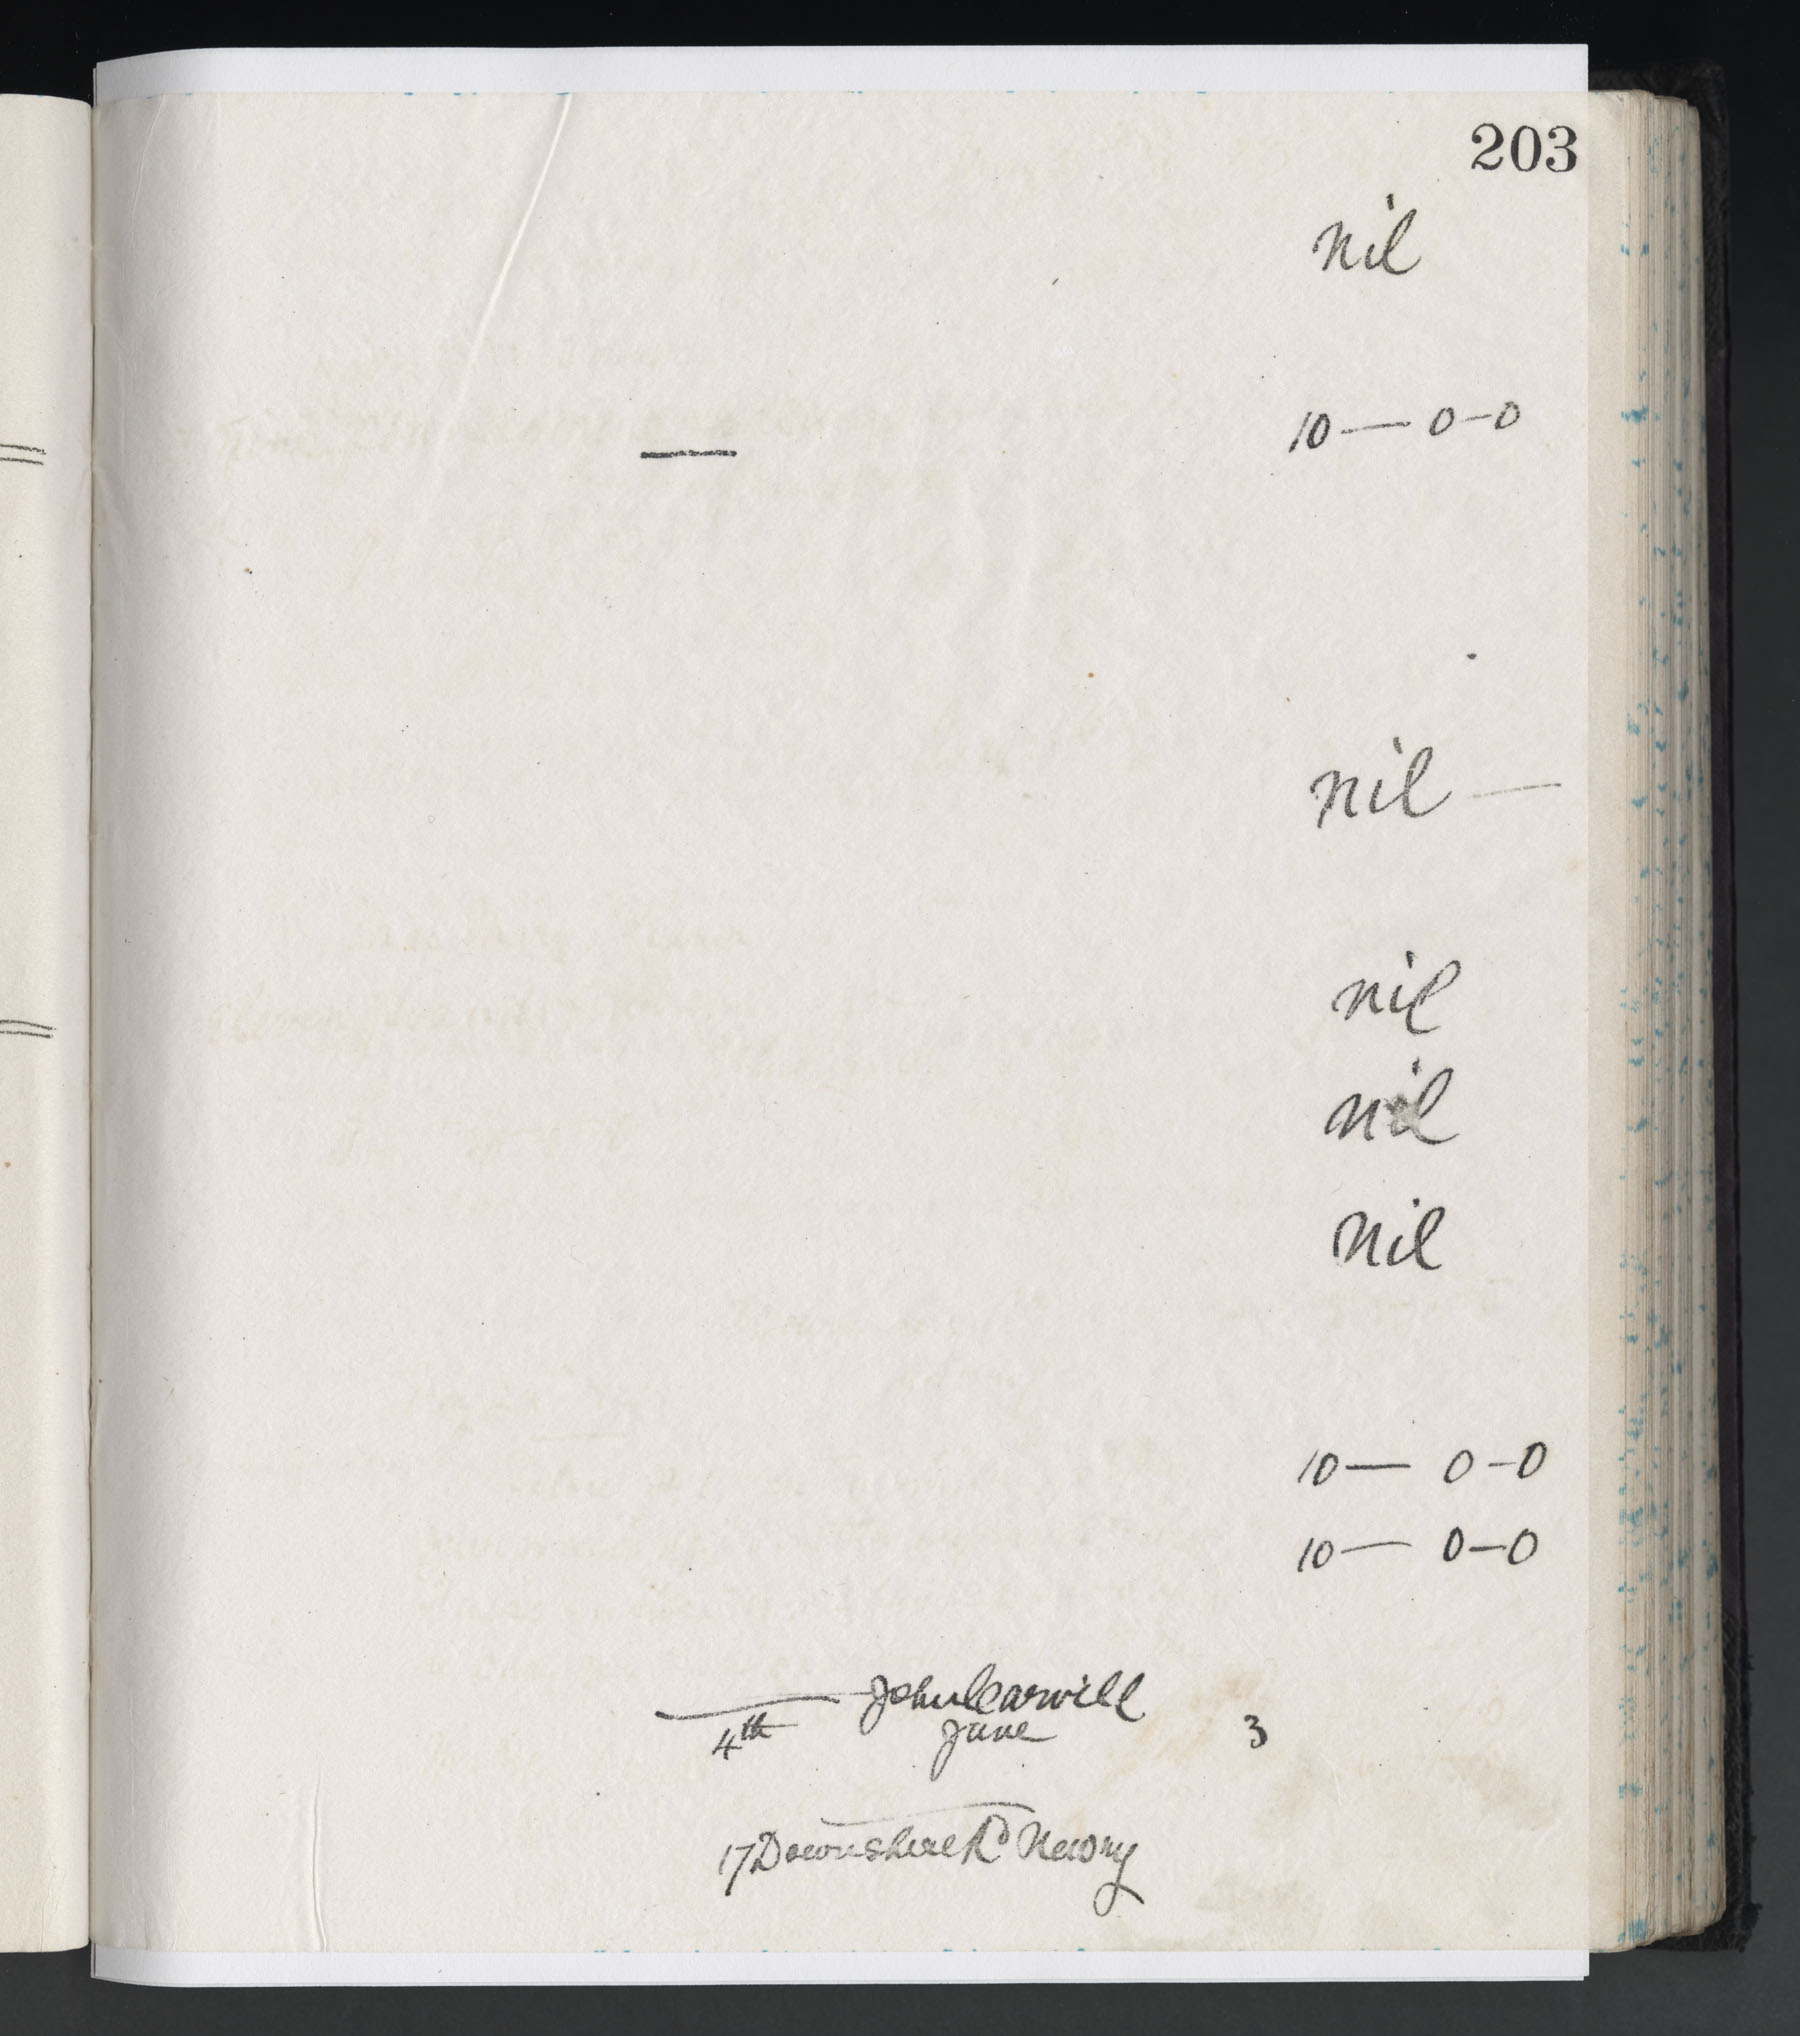 203
nil
10 — 0 – 0
nil —
nil
nil
nil
10 — 0 – 0
10 — 0 – 0
John Carvill
4th June 3
17 Downshire Rd Newry